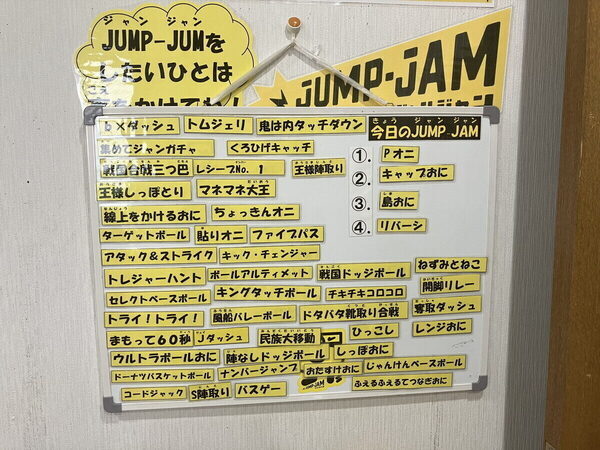 ジャン ジャン
JUMP-JUMを
したいひとは
こえ
JUMP-JAM
b×ダッシュ トムジェリ 鬼は内タッチダウン
きょう ジャン ジャン
今日のJUMP JAM
集めてジャンガチャ くろひげキャッチ
①. Pオニ
戦国合戦三つ巴 レシーブNo. 1 王様陣取り
②. キャップおに
王様しっぽとり マネマネ大王
③. 島おに
線上をかけるおに ちょっきんオニ
④. リバーシ
ターゲットボール 貼りオニ ファイブパス
アタック&ストライク キック・チェンジャー
トレジャーハント ボールアルティメット 戦国ドッジボール ねずみとねこ
セレクトベースボール キングタッチボール チキチキコロコロ 開脚リレー
トライ!トライ! 風船バレーボール ドタバタ靴取り合戦 奪取ダッシュ
まもって60秒 Jダッシュ 民族大移動 ひっこし レンジおに
ウルトラボールおに 陣なしドッジボール しっぽおに
ドーナツバスケットボール ナンバージャンプ おたすけおに じゃんけんベースボール
コードジャック S陣取り バスゲー ふえるふえるてつなぎおに
JUMP-JAM